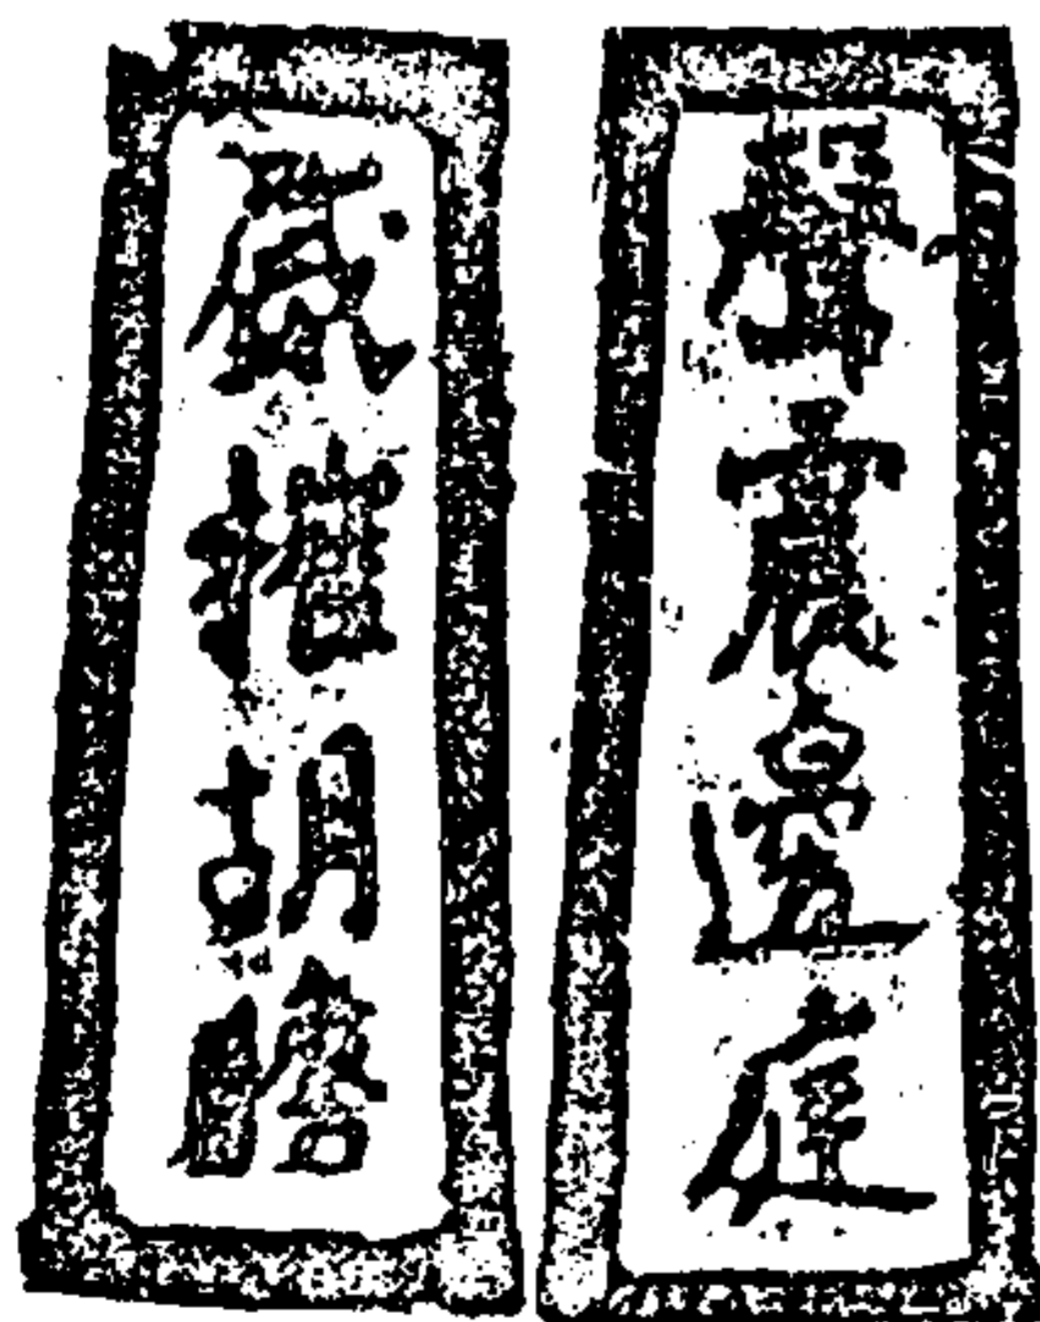 聲震邊庭
威摧胡膽